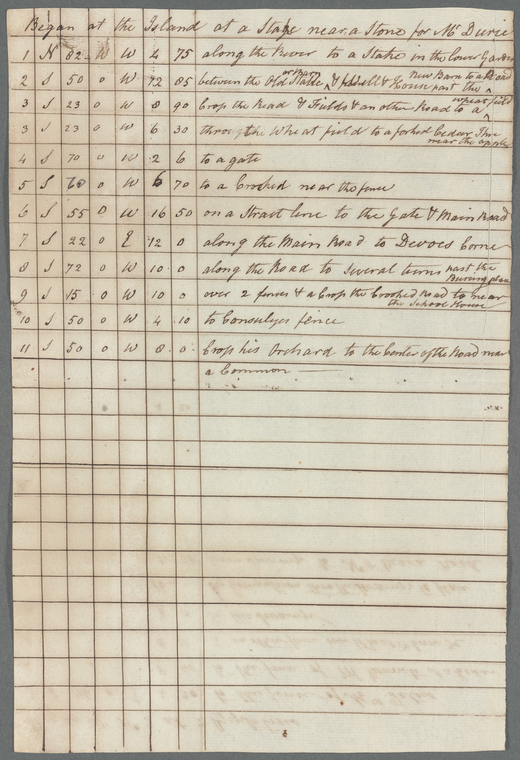 Began at the Island at a Stage near a Stone for Mr Durie
1 N 82 W W 4 75 along the River to a Stake in the lower Garden
2 S 50 0 W 72 85 between the Old Stable & & House past the New Barn to a Road
3 S 23 0 W 8 90 Crop the Road & Fields & another Road to a wheat field
3 S 23 0 W 6 30 through the Wheat field to a forked Cedar Tree near the apple
4 S 70 0 W 2 6 to a gate
5 S 60 0 W 6 70 to a Crooked near the fence
6 S 55 0 W 16 50 on a Strait line to the Gate & Main Road
7 S 22 0 E 12 0 along the Main Road to Devoes Corne
8 S 72 0 W 10 0 along the Road to Several turns past the Burying place
9 S 15 0 W 10 0 over 2 fences & a Crop the Crooked Road to near the School House
10 S 50 0 W 4 10 to fence
11 S 50 0 W 8 0 Crop his Orchard to the Center of the Road near
a Common